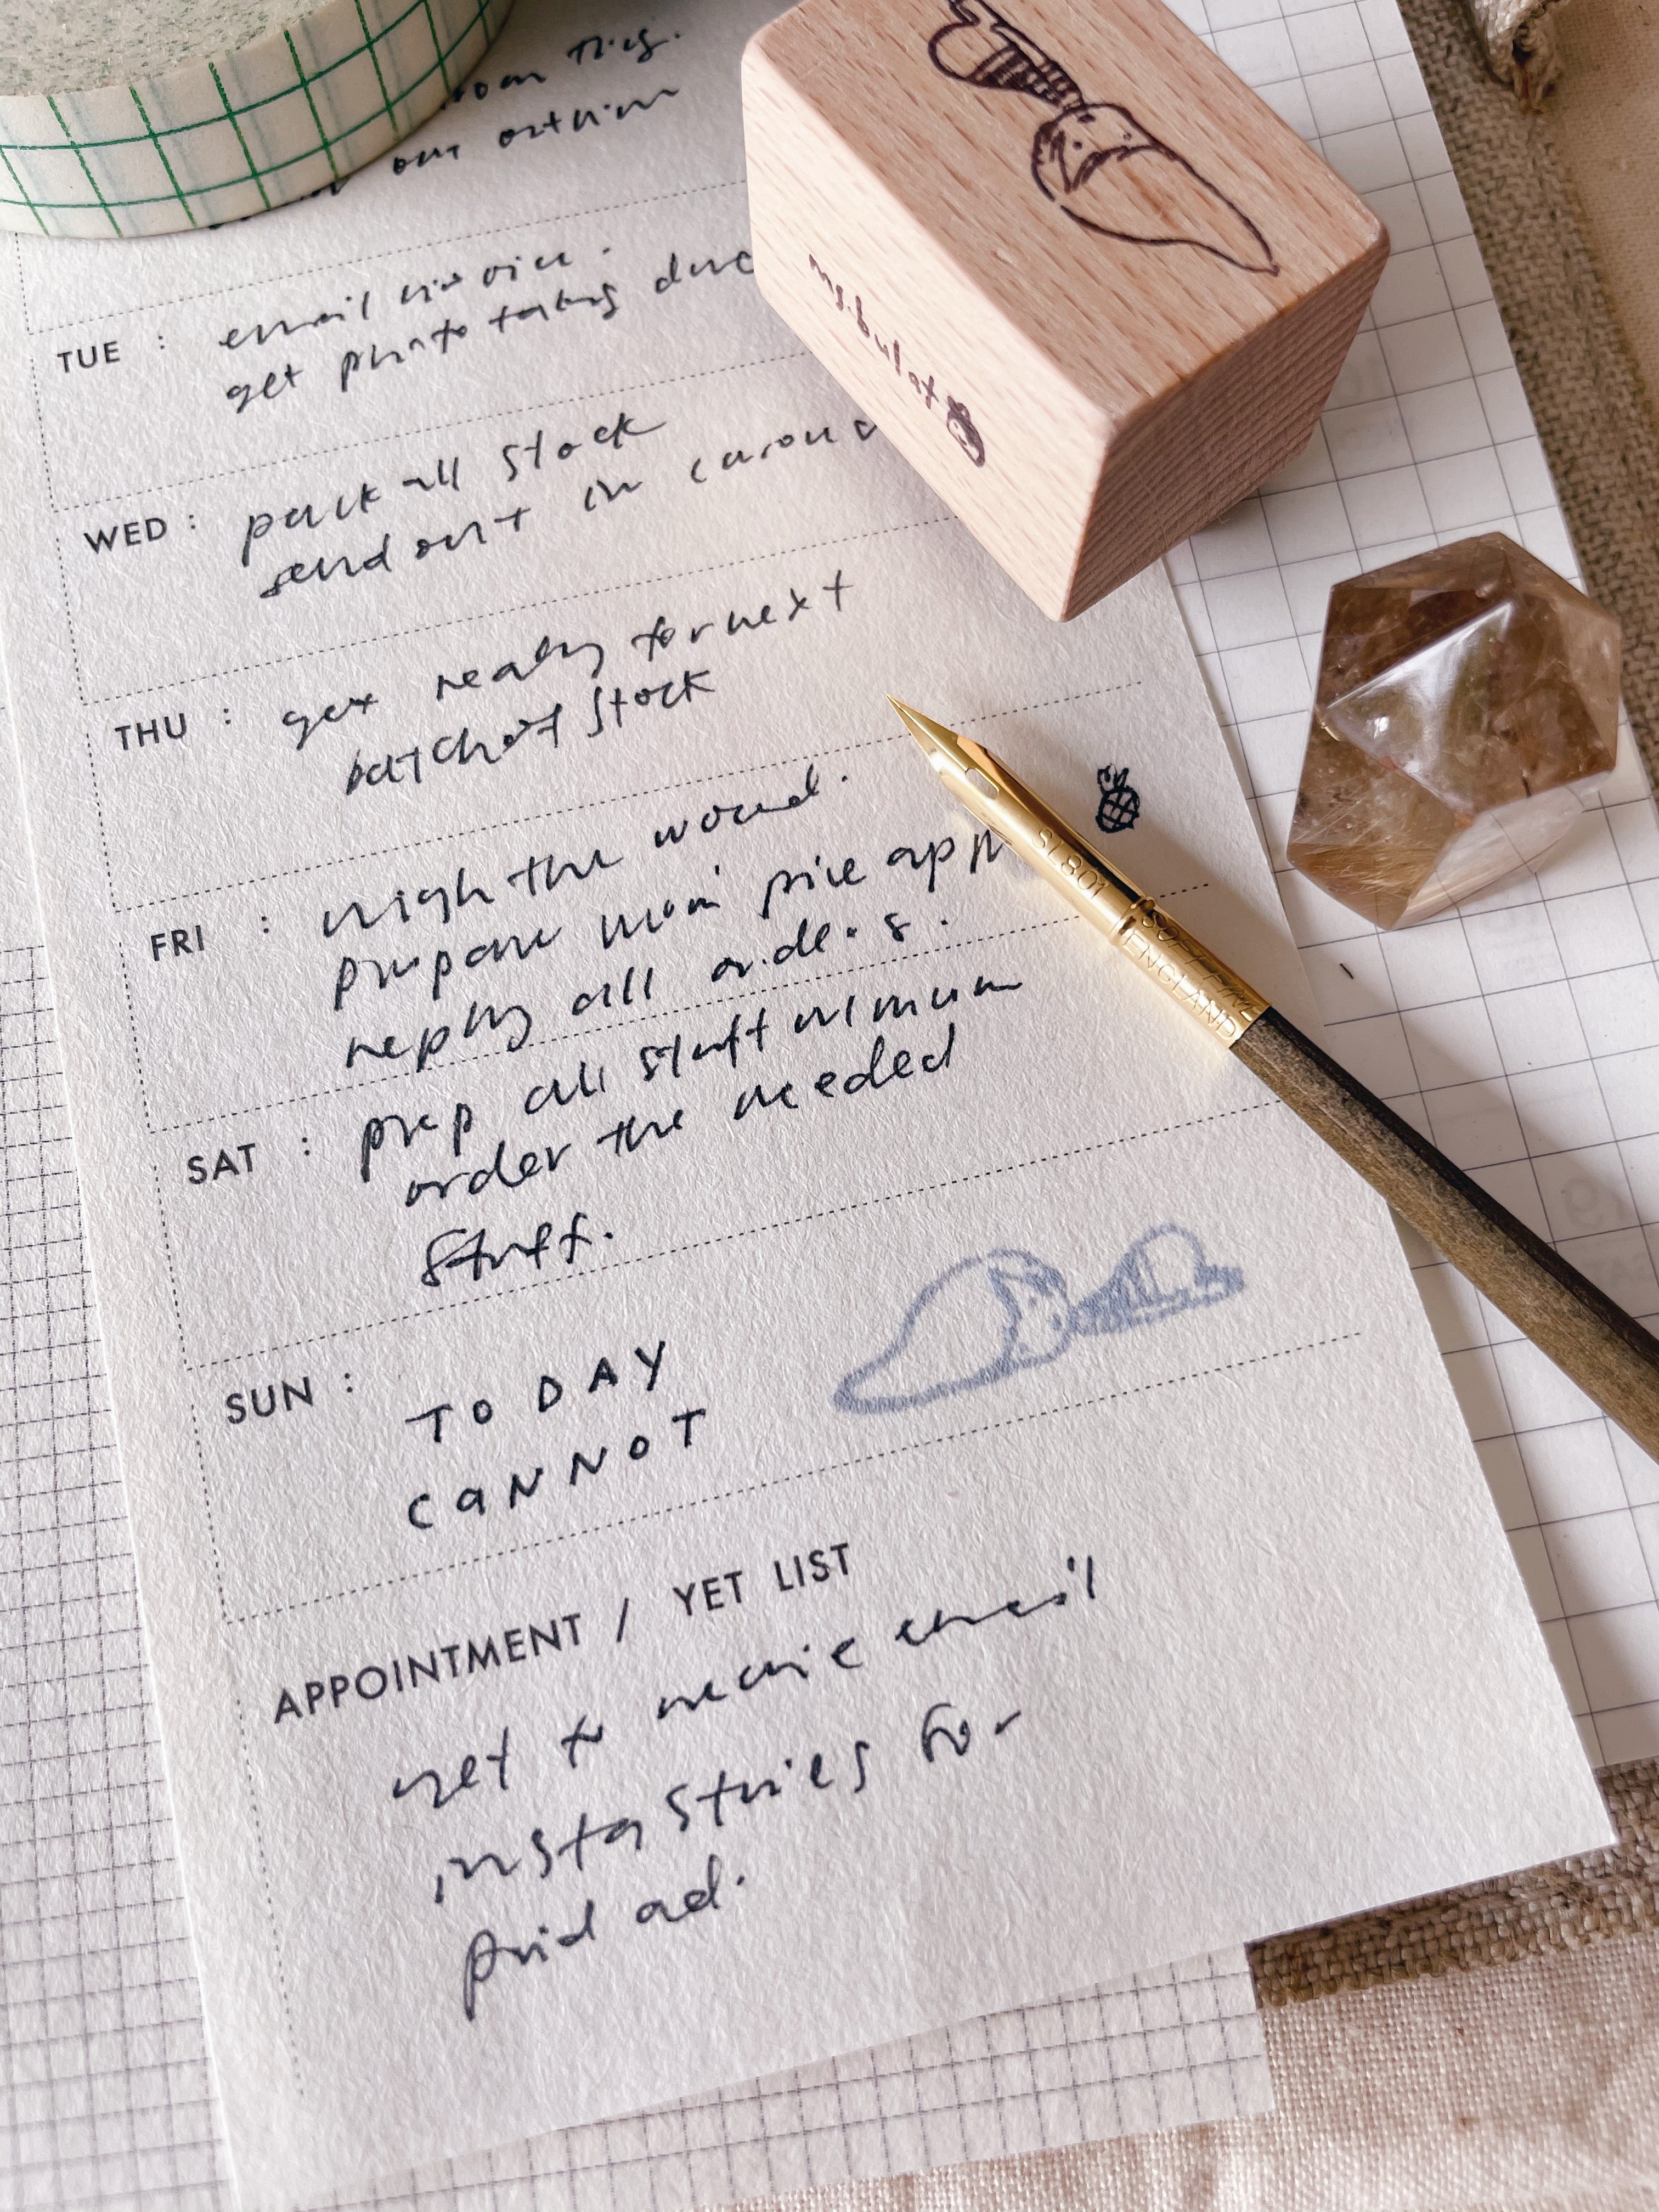 out
TUE : email invoice.
get photo taking
WED : pack all stock
send out in
THU : get ready for next
batch of stock
FRI : weigh the
prepare mom' pine app
reply all orders.
SAT : prep all stuff minimum
order the needed
stuff.
SUN : TODAY
CANNOT
APPOINTMENT / YET LIST
yet to receive email
insta stories for
paid ad.
ms.bulat
SL801
ENGLAND